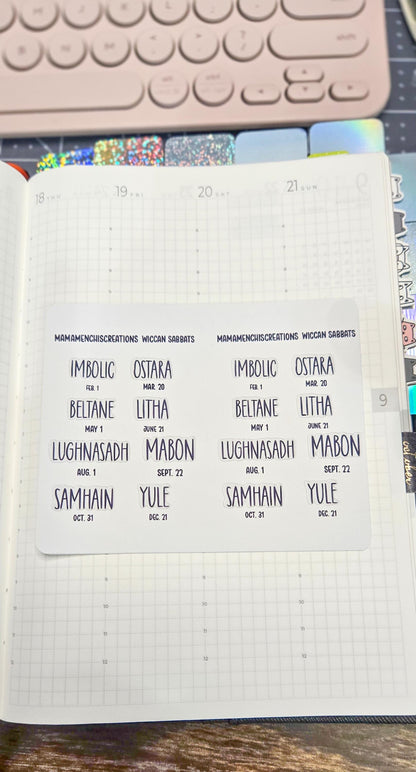 shift
18 THU
19 FRI
20 SAT
21 SUN
9
MAMAMENCHISCREATIONS WICCAN SABBATS
IMBOLIC OSTARA
FEB. 1 MAR. 20
BELTANE LITHA
MAY 1 JUNE 21
LUGHNASADH MABON
AUG. 1 SEPT. 22
SAMHAIN YULE
OCT. 31 DEC. 21
MAMAMENCHISCREATIONS WICCAN SABBATS
IMBOLIC OSTARA
FEB. 1 MAR. 20
BELTANE LITHA
MAY 1 JUNE 21
LUGHNASADH MABON
AUG. 1 SEPT. 22
SAMHAIN YULE
OCT. 31 DEC. 21
9
9 9 9 9
10 10 10 10
11 11 11 11
12 12 12